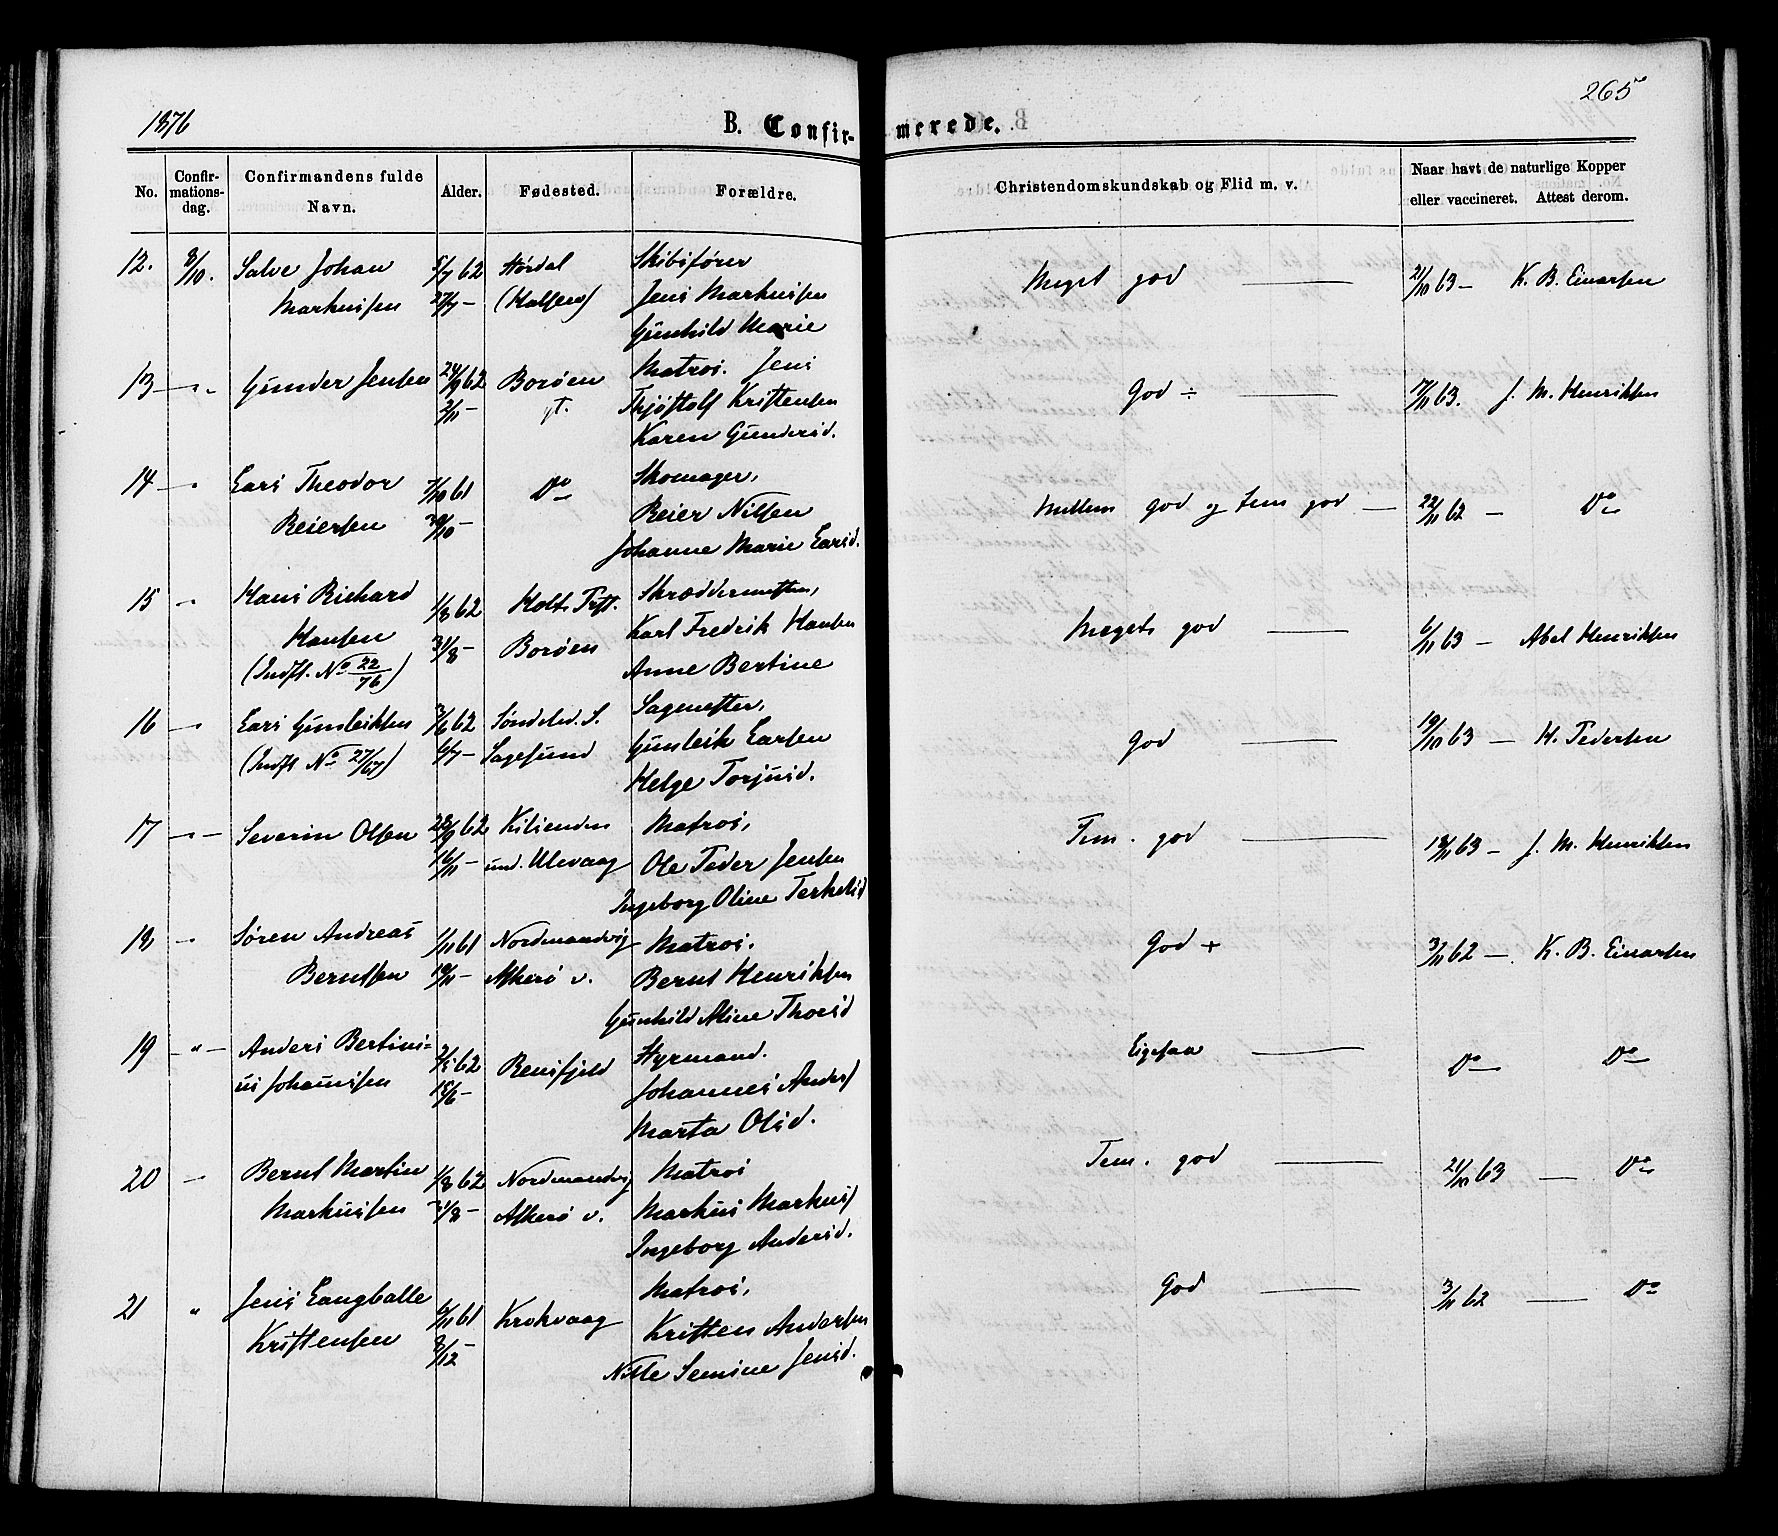 1876
B. Confirmerede.
265
No.
Confirmationsdag.
Confirmandens fulde Navn.
Alder.
Fødested.
Forældre.
Christendomskundskab og Flid m. v.
Naar havt de naturlige Kopper eller vaccineret. Attest derom.
12. 8/10. Salve Johan 5/7 62 Skibsfører Meget god — 21/10 63 — K. B. Einarsen
Markussen 27/7 — Jens Markussen
Gunhild Marie
13 — " - Gunder Jensen 24/9 62 Borøen Matros. Jens God ÷ 17/11 63. J. M. Henriksen
2/11 — Kristensen
Karen Gundersd.
14 — " Lars Theodor 7/10 61 Do Skomager, Mellem god og tem god — 22/11 62 — Do
Reiersen 30/10 — Reier Nilsen
Johanne Marie Larsd.
15 " Hans Richard 1/8 62 Holts Prst. Skræddermester, Meget god — 6/11 63 — Abel Henriksen
Hansen 31/8 — Borøen Karl Fredrik Hansen
(Indft. No 22/76) Anne Bertine
16 " Lars Gunleiksen 3/6 62 Søndeled. S. Sagmester, God — 19/10 63 — H. Pedersen
(Indft No 27/67) 6/7 — Lagesund Gunleik Larsen
Helge Torjusd.
17 — " — Severin Olsen 28/9 62 Matros, Tem. god — 18/11 63 — J. M. Henriksen
16/11 — und. Ulevaag Ole Peder Jensen
Ingeborg Oline Terkelsd
18 " Søren Andreas 1/11 61 Nordmandvig Matros. God + 3/11 62 — K. B. Einarsen
Berntsen 19/11 — Askerø v. Bernt Henriksen
Gunhild Aline Thorsd
19 — " — Anders Bertini= 2/5 62 Rensfjeld Styrmand. Ligesaa — Do Do
us Johannsen 15/6 — Johannes Anders
Marta Olsd.
20 — " Bernt Martin 1/8 62 Nordmandvig Matros Tem. god — 21/10 63 — Do
Markussen 31/8 — Askerø v. Markus Markus
Ingeborg Andersd.
21 " Jens Langballe 6/11 61 Krokvaag Matros, God — 3/11 62 — Do
Kristensen 3/12 — Kristen Andersen
Nille Semine Jensd.